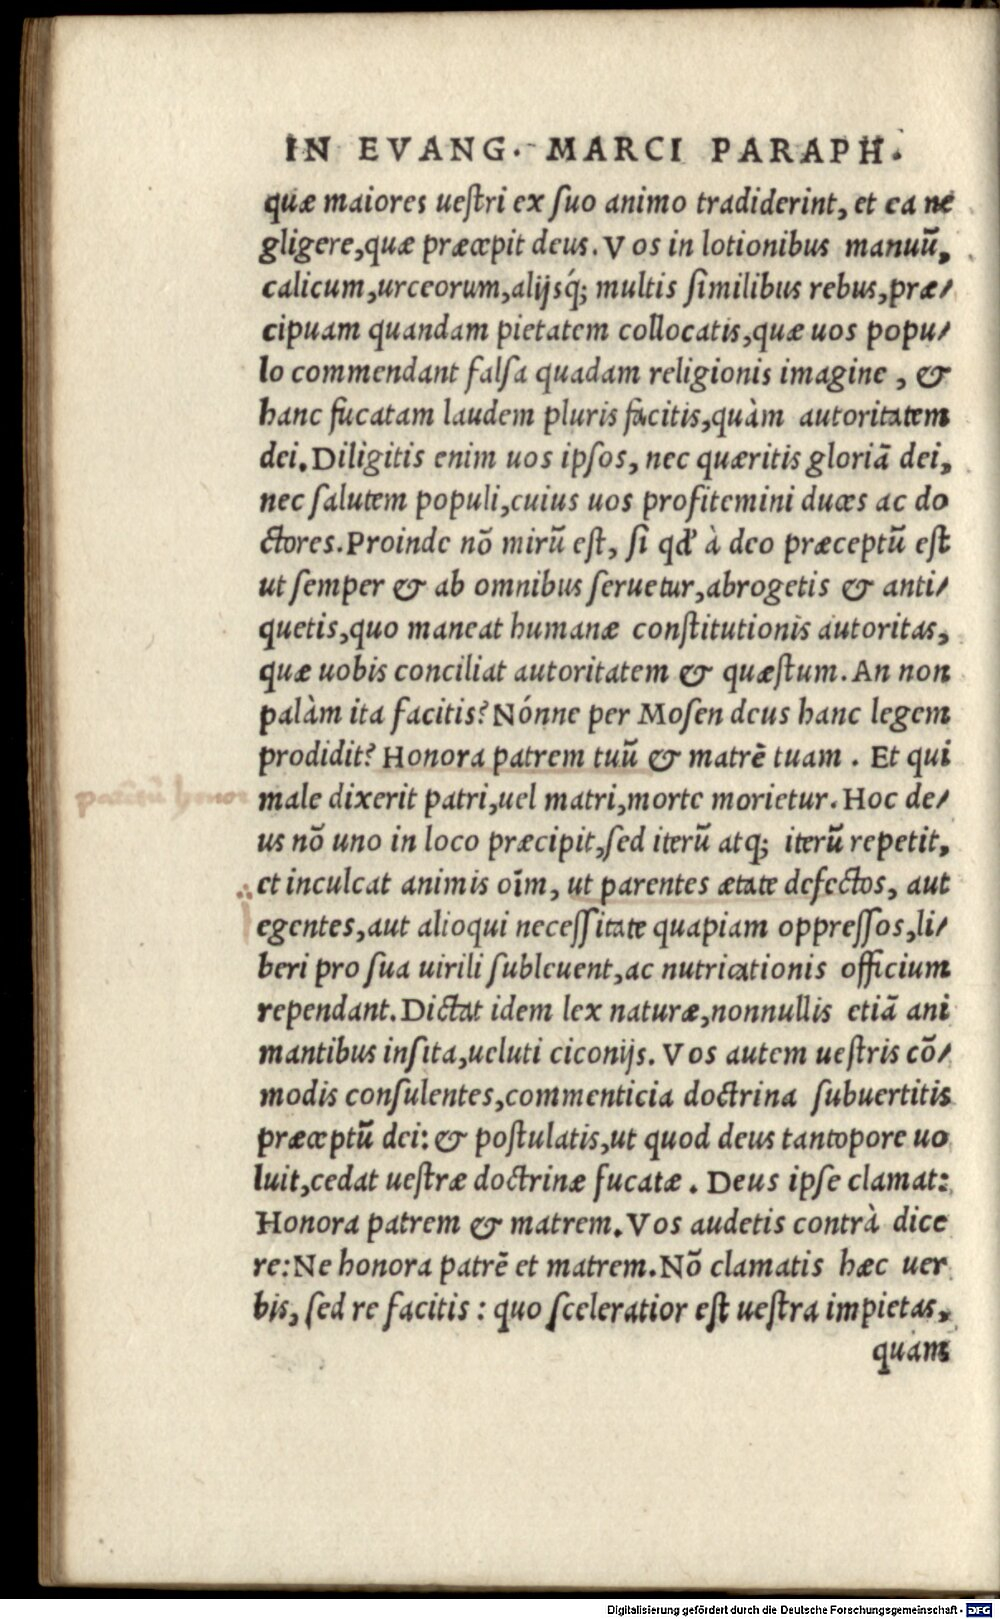 IN EVANG. MARCI PARAPH.
quæ maiores ueſtri ex ſuo animo tradiderint, et ea ne
gligere, quæ præcepit deus. Vos in lotionibus manuũ,
calicum, urceorum, alijsq́; multis ſimilibus rebus, præ/
cipuam quandam pietatem collocatis, quæ uos popu/
lo commendant falſa quadam religionis imagine, &
hanc fucatam laudem pluris facitis, quàm autoritatem
dei. Diligitis enim uos ipſos, nec quæritis gloriã dei,
nec ſalutem populi, cuius uos profitemini duces ac do
ctores. Proinde nõ mirũ eſt, ſi qd' à deo præceptũ eſt
ut ſemper & ab omnibus ſeruetur, abrogetis & anti/
quetis, quo maneat humanæ conſtitutionis autoritas,
quæ uobis conciliat autoritatem & quæſtum. An non
palàm ita facitis? Nónne per Moſen deus hanc legem
prodidit? Honora patrem tuũ & matrẽ tuam. Et qui
male dixerit patri, uel matri, morte morietur. Hoc de/
us nõ uno in loco præcipit, ſed iterũ atq; iterũ repetit,
et inculcat animis oĩm, ut parentes ætate defectos, aut
egentes, aut alioqui neceſſitate quapiam oppreſſos, li/
beri pro ſua uirili ſubleuent, ac nutricationis officium
rependant. Dictat idem lex naturæ, nonnullis etiã ani
mantibus inſita, ueluti ciconijs. Vos autem ueſtris cõ/
modis conſulentes, commenticia doctrina ſubuertitis
præceptũ dei: & poſtulatis, ut quod deus tantopere uo
luit, cedat ueſtræ doctrinæ fucatæ. Deus ipſe clamat:
Honora patrem & matrem. Vos audetis contrà dice
re: Ne honora patrẽ et matrem. Nõ clamatis hæc uer
bis, ſed re facitis: quo ſceleratior eſt ueſtra impietas,
quam
honor
Digitalisierung gefördert durch die Deutsche Forschungsgemeinschaft - DFG